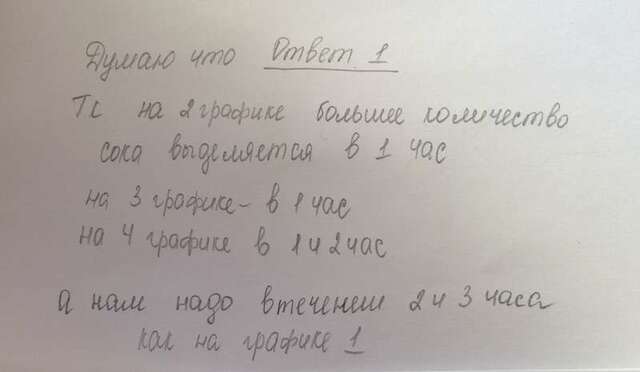 Думаю что Ответ 1
Тк на 2 графике большее количество
сока выделяется в 1 час
на 3 графике - в 1 час
на 4 графике в 1 и 2 час
а нам надо втечении 2 и 3 часа
как на графике 1